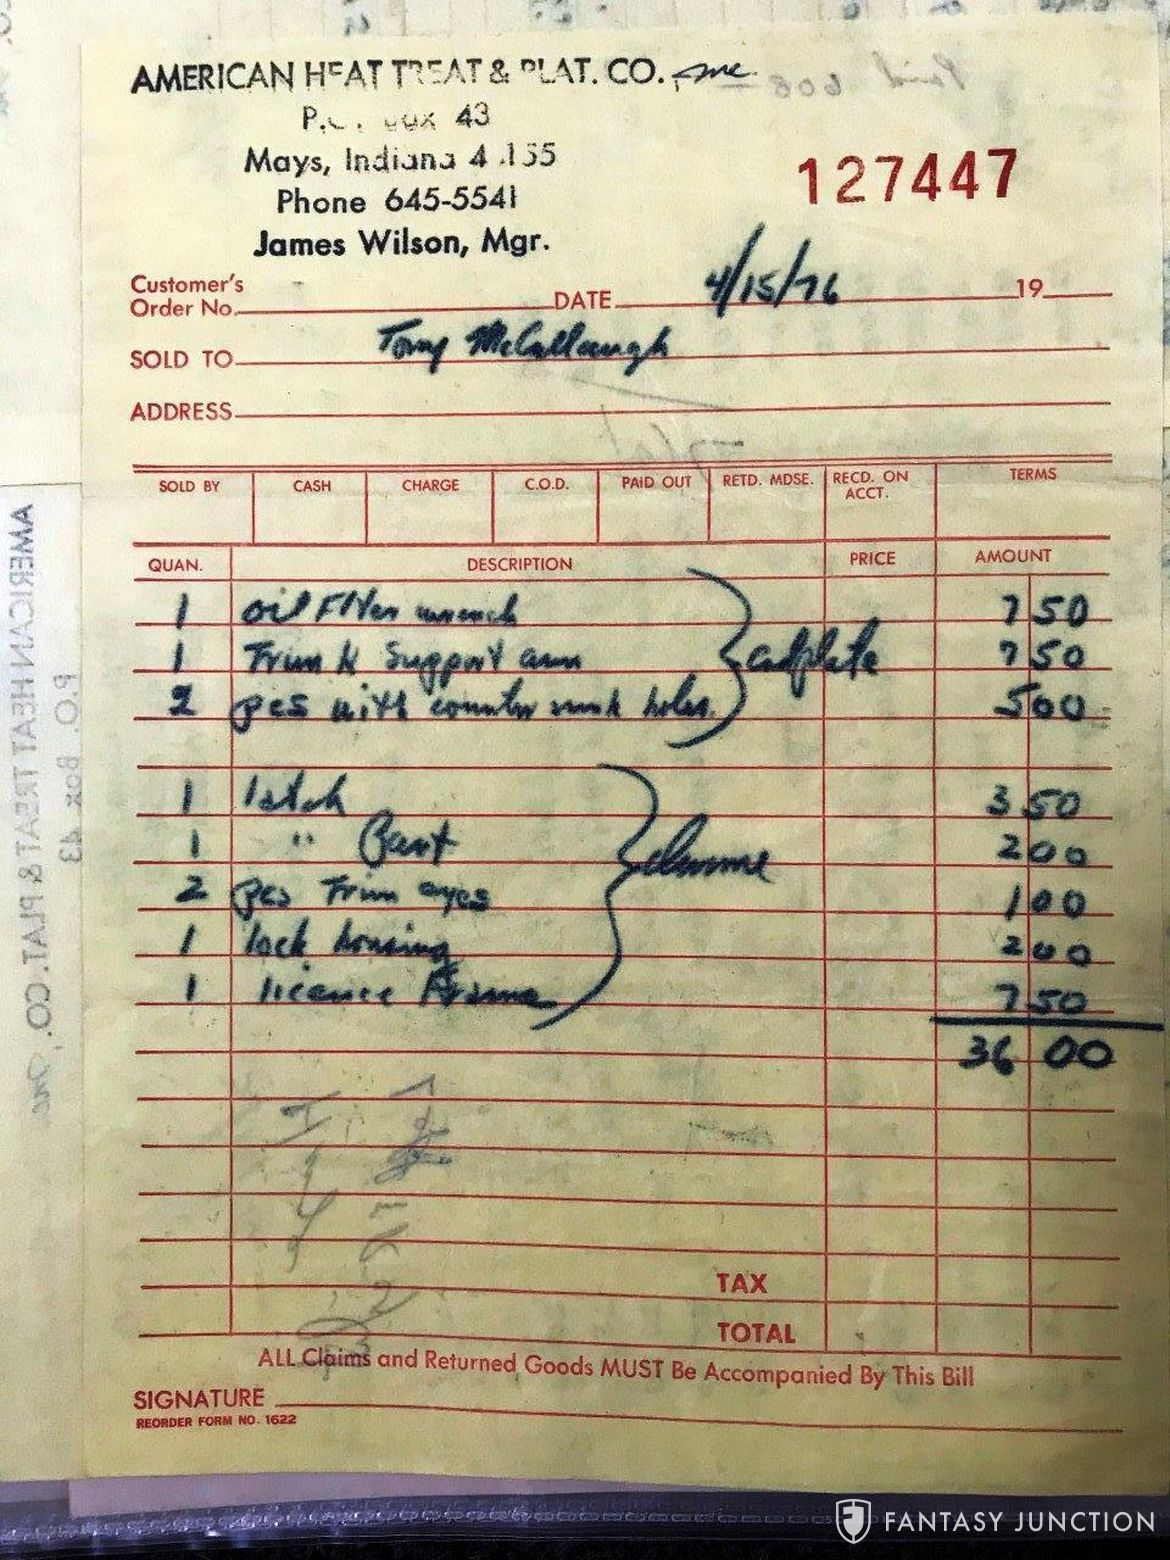 AMERICAN HEAT TREAT & PLAT. CO., Inc.
P.O. Box 43
Mays, Indiana 4 155
Phone 645-5541
James Wilson, Mgr.
127447
Customer's
Order No. DATE 4/15/76 19
SOLD TO Tony McCullaugh
ADDRESS
SOLD BY CASH CHARGE C.O.D. PAID OUT RETD. MDSE. RECD. ON ACCT. TERMS
QUAN. DESCRIPTION PRICE AMOUNT
1 oil Filter wrench 7 50
1 Trunk support arm cadplate 7 50
2 pcs with counter sunk holes. 5 00
1 latch 3 50
1 " Part 2 00
2 pcs Trim eyes 1 00
1 lock housing 2 00
1 licence Frame 7 50
36 00
TAX
TOTAL
ALL Claims and Returned Goods MUST Be Accompanied By This Bill
SIGNATURE
REORDER FORM NO. 1622
AMERICAN HEAT TREAT & PLAT. CO., Inc
P.O. Box 43
Paid 606
FANTASY JUNCTION